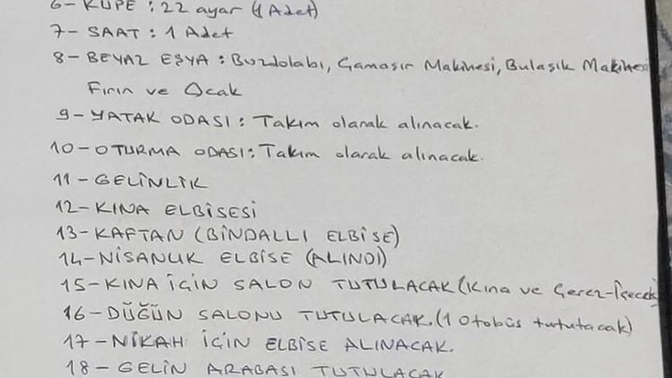 6- KÜPE : 22 ayar (1 Adet)
7- SAAT : 1 Adet
8- BEYAZ EŞYA : Buzdolabı, Çamaşır Makinesi, Bulaşık Makinesi
Fırın ve Ocak
9- YATAK ODASI : Takım olarak alınacak.
10- OTURMA ODASI : Takım olarak alınacak.
11- GELİNLİK
12- KINA ELBİSESİ
13- KAFTAN (BİNDALLI ELBİSE)
14- NİŞANLIK ELBİSE (ALINDI)
15- KINA İÇİN SALON TUTULACAK (Kına ve Çerez-İçecek)
16- DÜĞÜN SALONU TUTULACAK. (1 Otobüs tutulacak)
17- NİKAH İÇİN ELBİSE ALINACAK.
18- GELİN ARABASI TUTULACAK